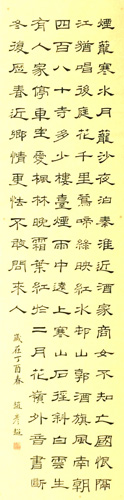 煙籠寒水月籠沙夜泊秦淮近酒家商女不知亡國恨隔
江猶唱後庭花千里鶯啼綠映紅水邨山郭酒旗風南朝
四百八十寺多少樓臺煙雨中遠上寒山石徑斜白雲生
有人家停車坐愛楓林晚霜葉紅於二月花嶺外音書斷
冬復歷春近鄉情更怯不敢問來人
歲在丁酉春